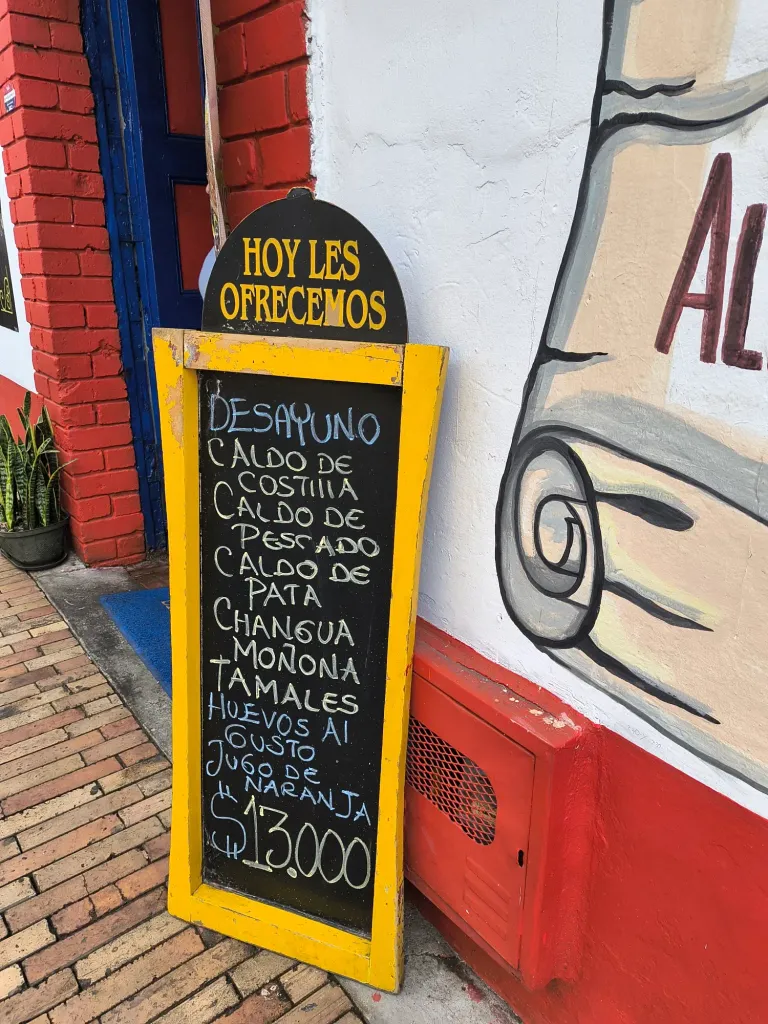 HOY LES
OFRECEMOS
DESAYUNO
CALDO DE
COSTIllA
CALDO DE
PESCADO
CALDO DE
PATA
CHANGUA
MOÑONA
TAMALES
HUEVOS Al
GUSTO
JUGO DE
NARANJA
$13.000
AL